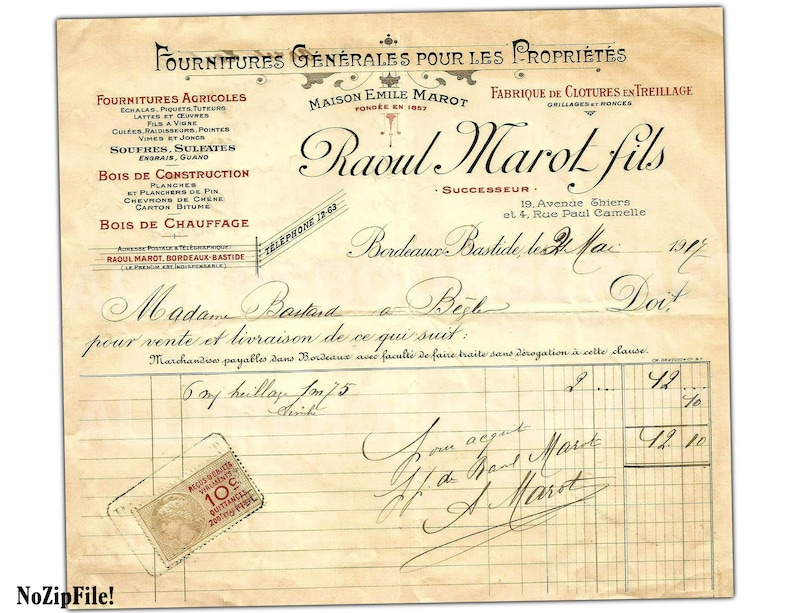 FOURNITURES GÉNÉRALES POUR LES PROPRIÉTÉS
MAISON EMILE MAROT
FONDÉE EN 1857
FOURNITURES AGRICOLES
ECHALAS, PIQUETS, TUTEURS
LATTES ET ŒUVRES
FILS A VIGNE
CULÉES, RAIDISSEURS, POINTES
VIMES ET JONCS
SOUFRES, SULFATES
ENGRAIS, GUANO
BOIS DE CONSTRUCTION
PLANCHES
ET PLANCHERS DE PIN
CHEVRONS DE CHÊNE
CARTON BITUMÉ
BOIS DE CHAUFFAGE
ADRESSE POSTALE & TÉLÉGRAPHIQUE:
RAOUL MAROT, BORDEAUX-BASTIDE
(LE PRÉNOM EST INDISPENSABLE)
TÉLÉPHONE 12-63
FABRIQUE DE CLOTURES EN TREILLAGE
GRILLAGES ET RONCES
Raoul Marot fils
SUCCESSEUR
19, Avenue Thiers
et 4, Rue Paul Camelle
Bordeaux-Bastide, le Mai 1917
Madame Bastard a Bègles Doit,
pour vente et livraison de ce qui suit:
Marchandises payables dans Bordeaux avec faculté de faire traite sans dérogation à cette clause.
6 treillage 1m75 2 12
10
12 10
pour acquit
de Raoul Marot
A Marot
REÇUS D'OBJETS
10c
QUITTANCES
NoZipFile!